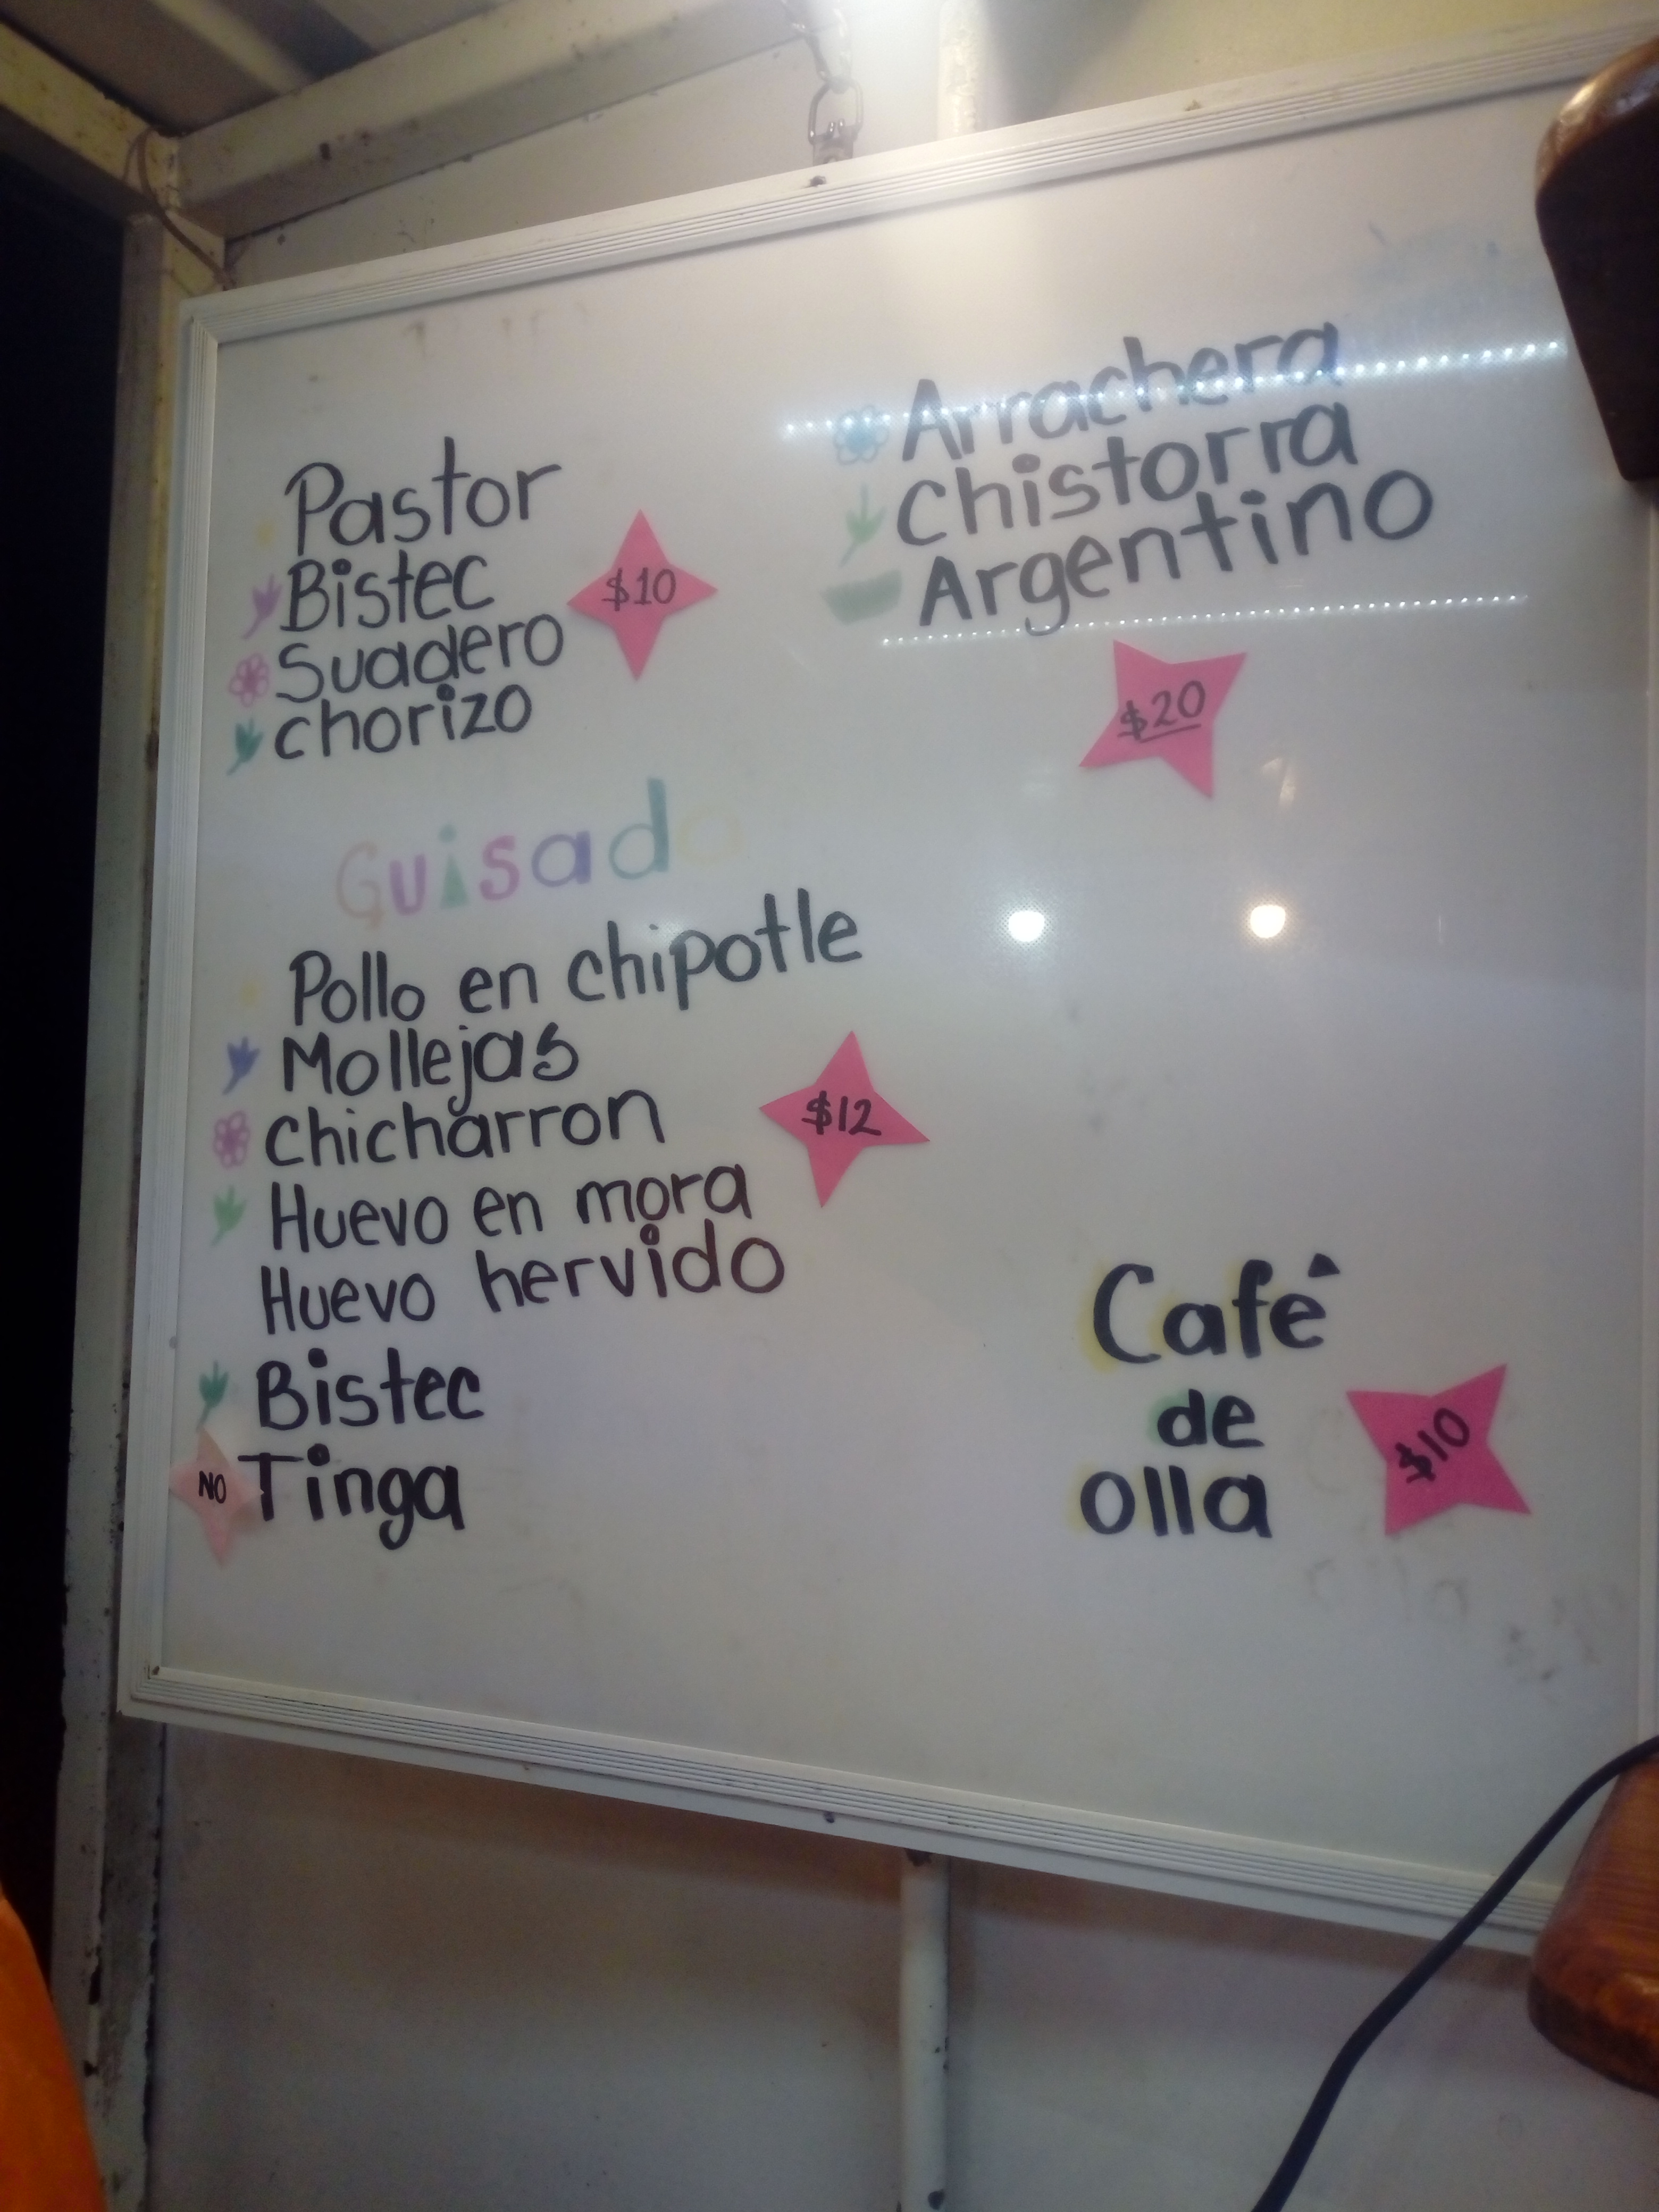 Pastor
Bistec
Suadero
chorizo
$10
Arrachera
Chistorra
Argentino
$20
Guisado
Pollo en chipotle
Mollejas
chicharron
Huevo en mora
Huevo hervido
Bistec
NO Tinga
$12
Café
de
olla
$10